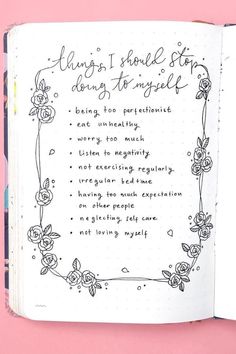 things I should stop
doing to myself
• being too perfectionist
• eat unhealthy
• worry too much
• listen to negativity
• not exercising regularly
• irregular bedtime
• having too much expectation
on other people
• neglecting self care
• not loving myself